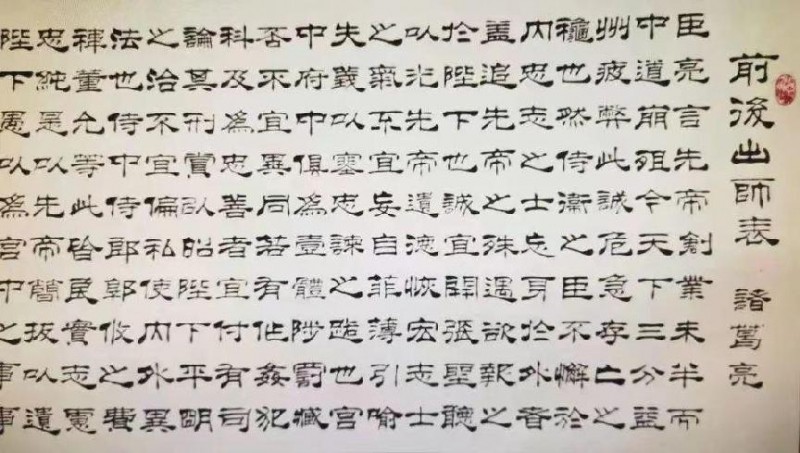 前後出師表 諸葛亮
臣亮言先帝創業未半而
中道崩殂今天下三分益
州疲弊此誠危急存亡之
穐也然侍衛之臣不懈於
内忠志之士忘身於外者
蓋追先帝之殊遇欲報之
於陛下也誠宜開張聖聽
以光先帝遺德恢宏志士
之氣不宜妄自菲薄引喻
失義以塞忠諫之路也宮
中府中俱為壹體陟罰臧
否不宜異同若有作姦犯
科及為忠善者宜付有司
論其刑賞以昭陛下平明
之治不宜偏私使内外異
法也侍中侍郎郭攸之費
禕董允等此皆良實志慮
忠純是以先帝簡拔以遺
陛下愚以為宮中之事事